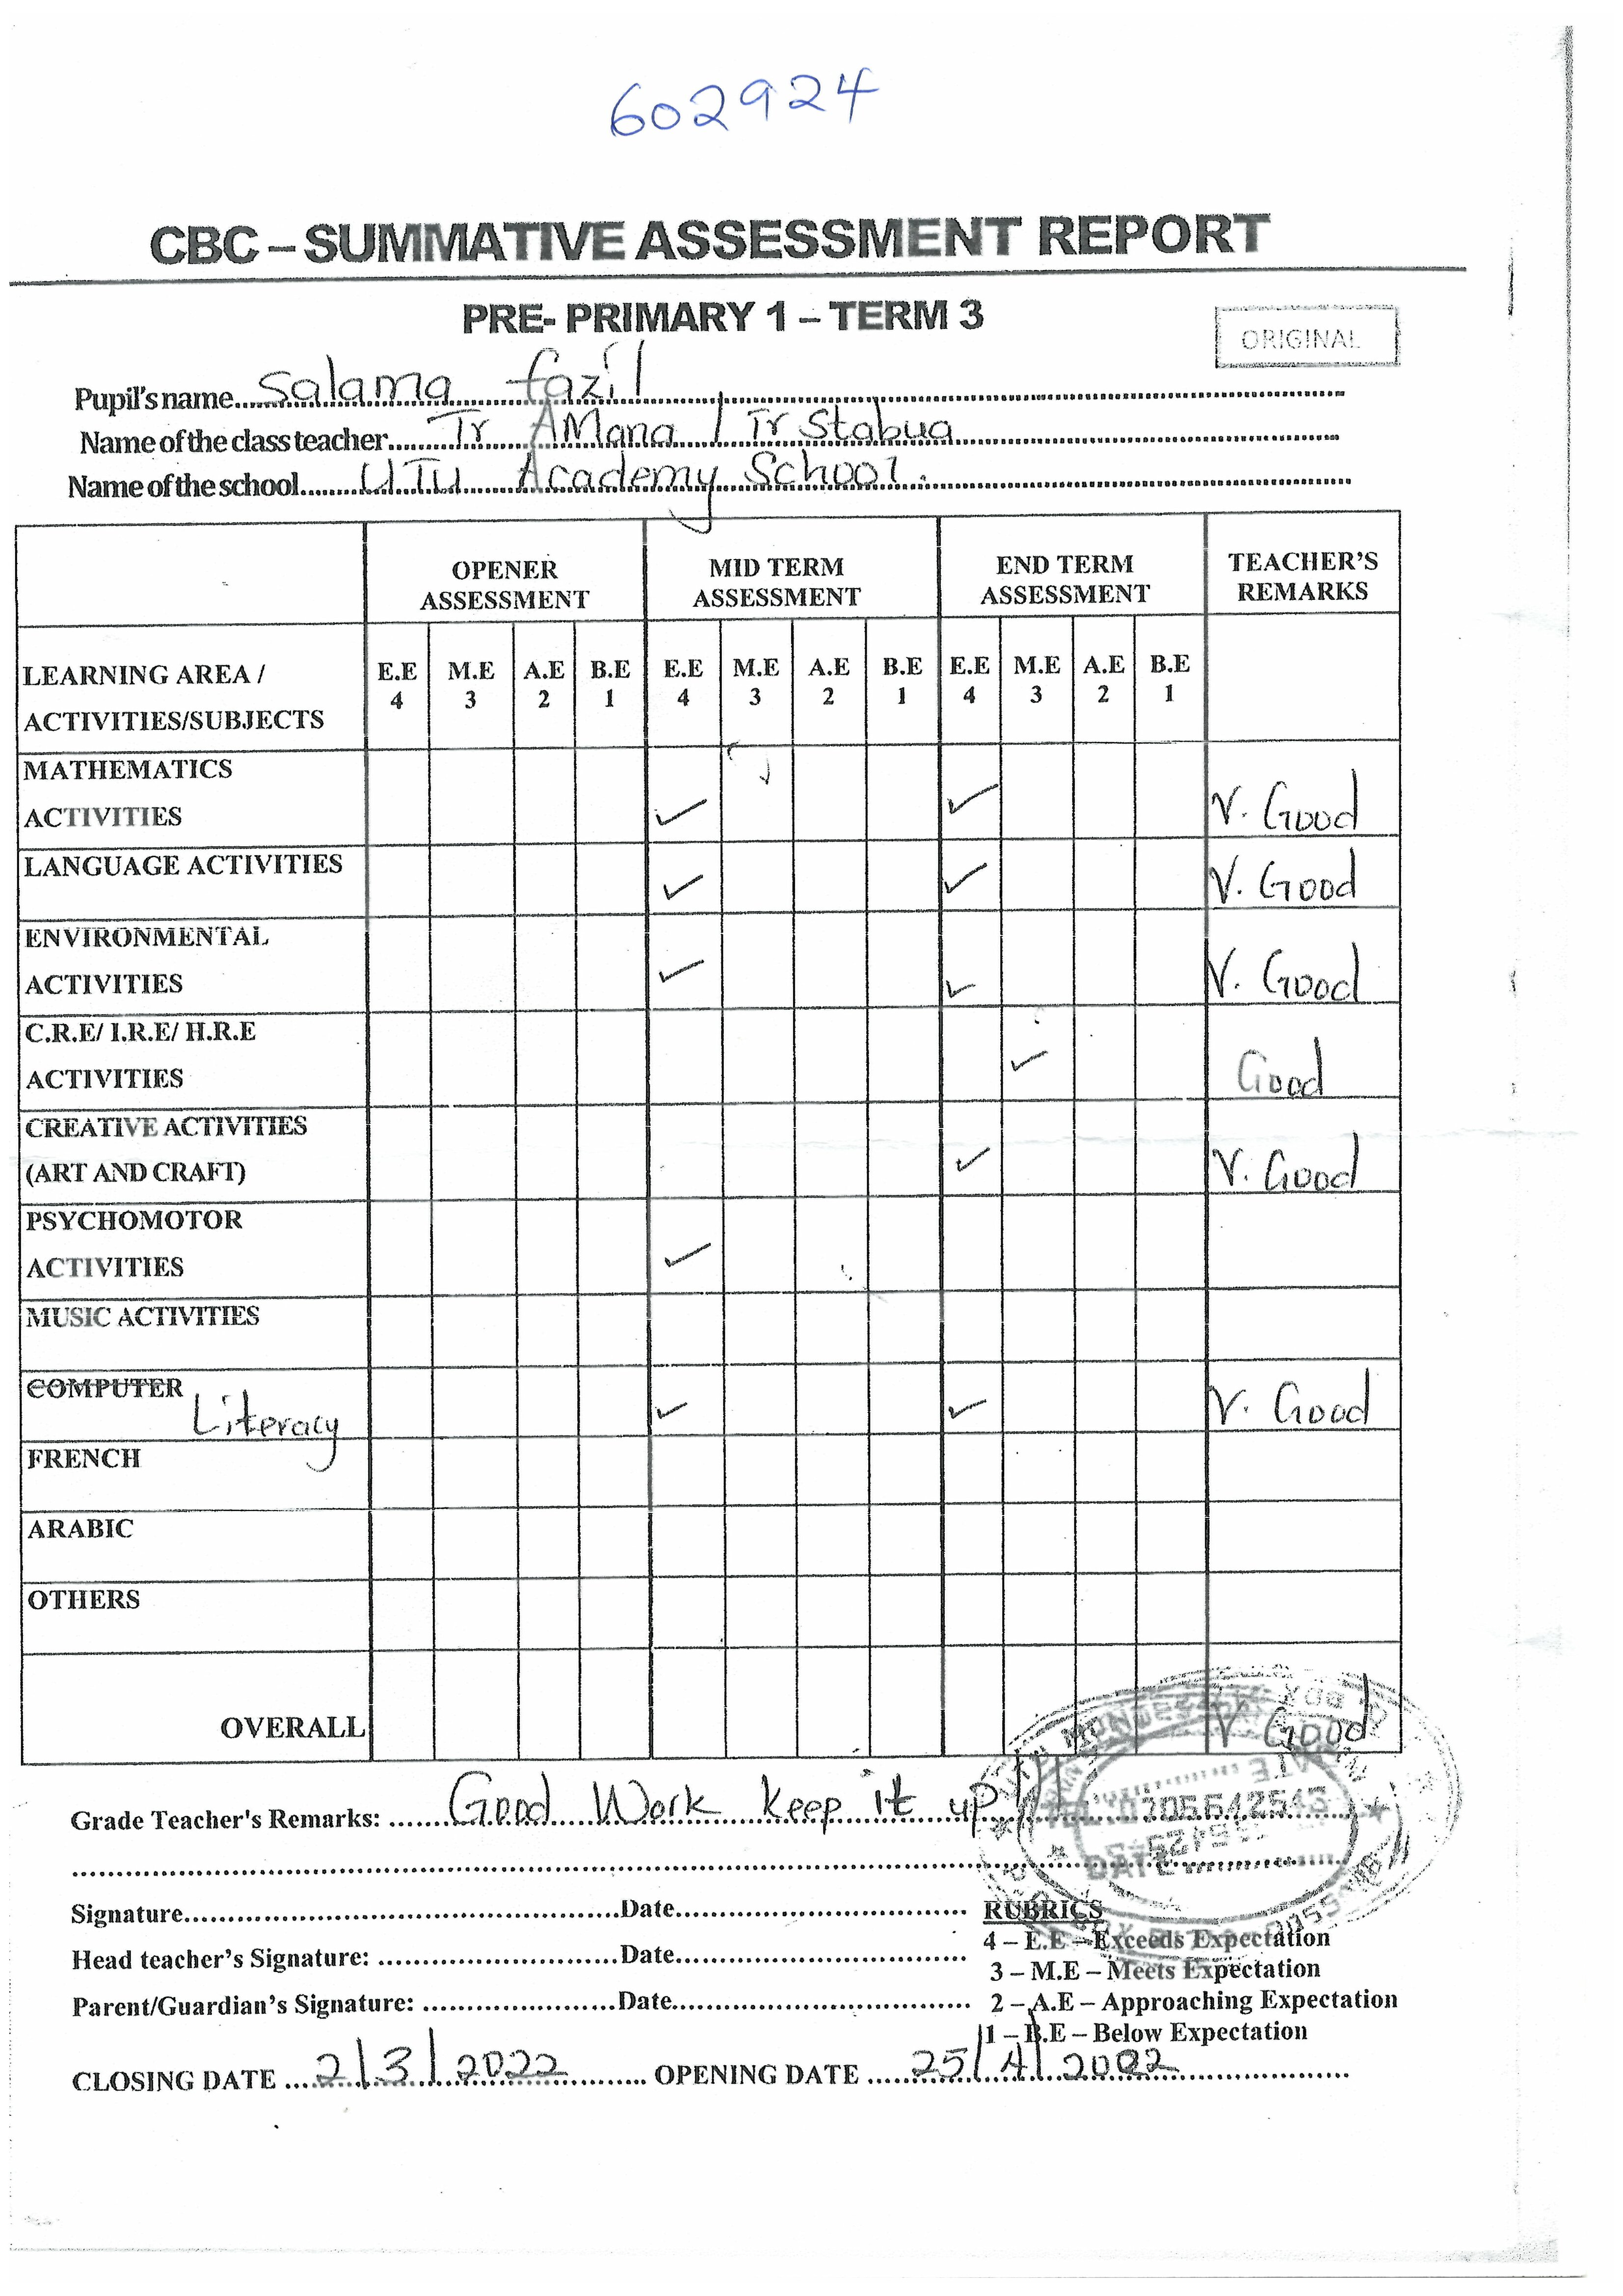 602924
CBC – SUMMATIVE ASSESSMENT REPORT
PRE- PRIMARY 1 – TERM 3
ORIGINAL
Pupil's name Salama fazil
Name of the class teacher Tr AMana / Tr Stabua
Name of the school UTU Academy School.
OPENER ASSESSMENT MID TERM ASSESSMENT END TERM ASSESSMENT TEACHER'S REMARKS
LEARNING AREA / ACTIVITIES/SUBJECTS E.E 4 M.E 3 A.E 2 B.E 1 E.E 4 M.E 3 A.E 2 B.E 1 E.E 4 M.E 3 A.E 2 B.E 1
MATHEMATICS ACTIVITIES ✓ ✓ V. Good
LANGUAGE ACTIVITIES ✓ ✓ V. Good
ENVIRONMENTAL ACTIVITIES ✓ ✓ V. Good
C.R.E/ I.R.E/ H.R.E ACTIVITIES ✓ Good
CREATIVE ACTIVITIES (ART AND CRAFT) ✓ V. Good
PSYCHOMOTOR ACTIVITIES ✓
MUSIC ACTIVITIES
COMPUTER Literacy ✓ ✓ V. Good
FRENCH
ARABIC
OTHERS
OVERALL V. Good
Grade Teacher's Remarks: Good Work keep it up
DATE
Signature Date
RUBRICS
4 – E.E – Exceeds Expectation
Head teacher's Signature: Date
3 – M.E – Meets Expectation
Parent/Guardian's Signature: Date
2 – A.E – Approaching Expectation
1 – B.E – Below Expectation
CLOSING DATE 2/3/2022 OPENING DATE 25/4/2022